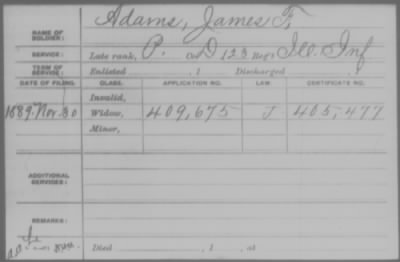 NAME OF SOLDIER: Adams, James F.
SERVICE: Late rank, P. Co. D, 123 Reg't Ill. Inf
TERM OF SERVICE: Enlisted , 1 Discharged , 1
DATE OF FILING. CLASS. APPLICATION NO. LAW. CERTIFICATE NO.
Invalid,
1889. Nov. 30 Widow, 409,675 J 405,477
Minor,
ADDITIONAL SERVICES:
REMARKS:
Died , 1 , at